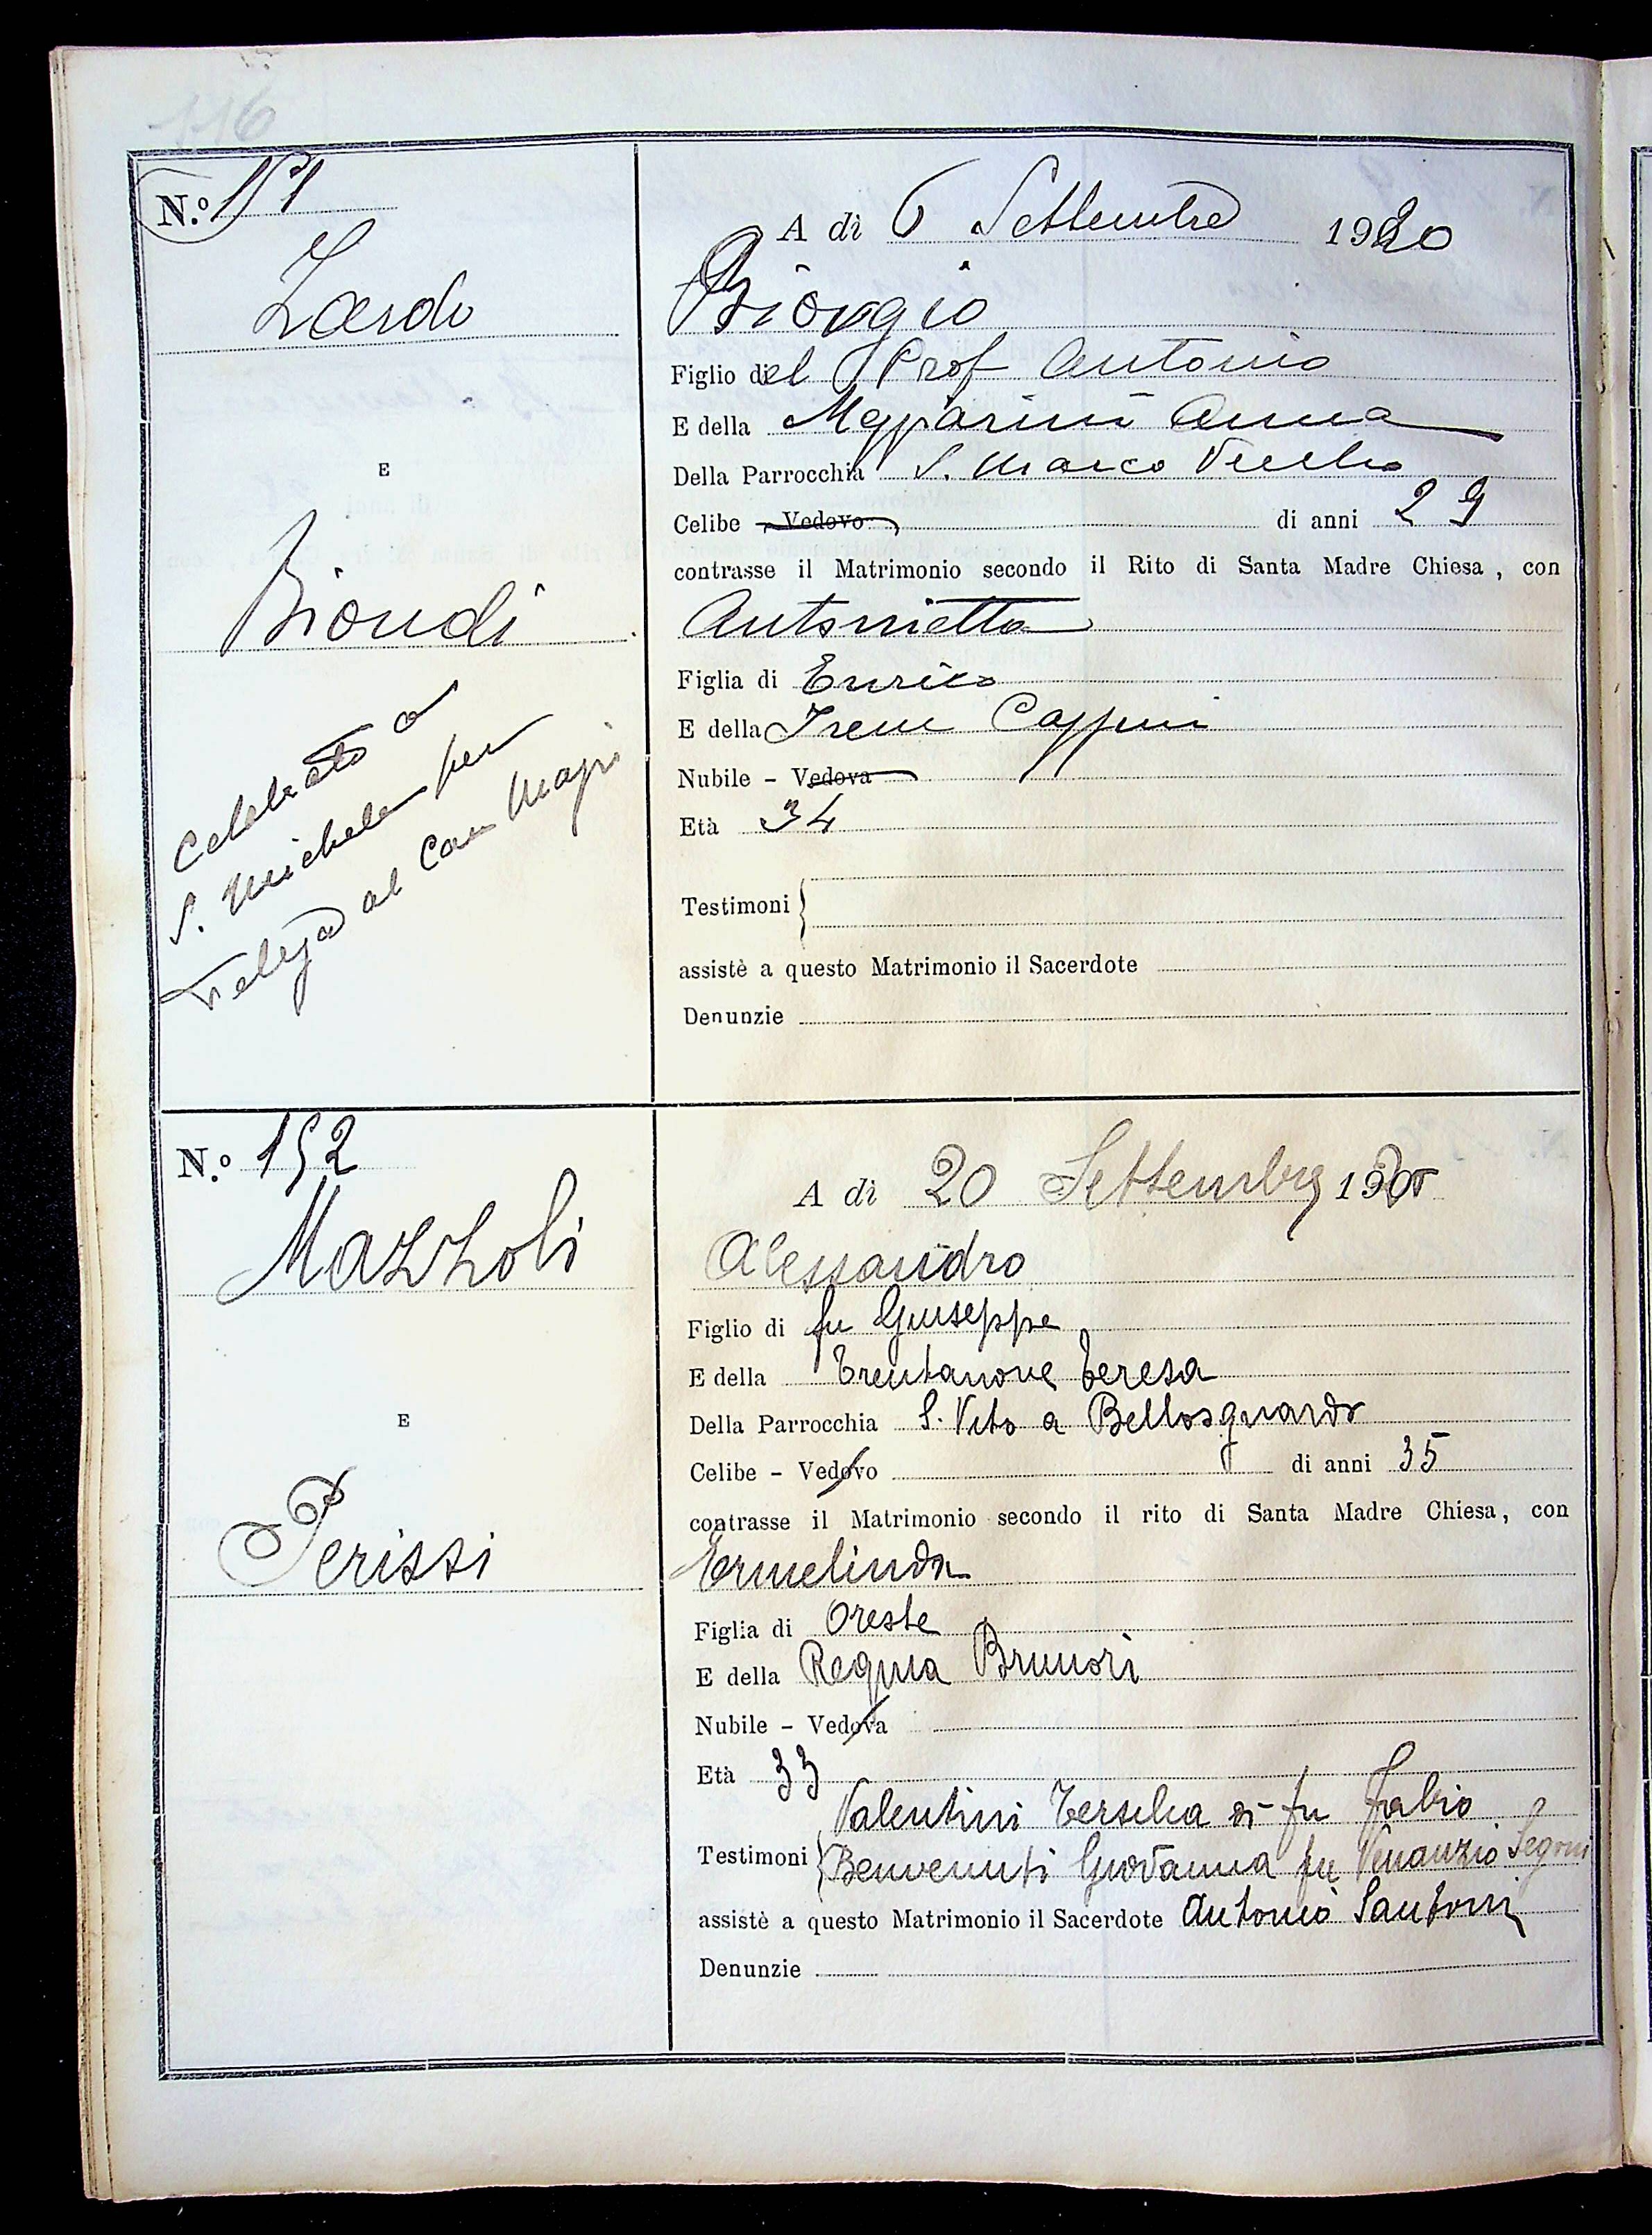 116
N.º 151
A dì 6 Settembre 1920
Zardo
Giorgio
Figlio del Prof Antonio
E della Magiarini Anna
Della Parrocchia S. Marco Vecchio
E
Celibe - Vedovo di anni 29
contrasse il Matrimonio secondo il Rito di Santa Madre Chiesa, con
Biondi
Antonietta
Figlia di Enrico
E della Irene Cappini
Nubile - Vedova
Età 34
Celebrato a
S. Michele per
Delega al Can Magi
Testimoni
assistè a questo Matrimonio il Sacerdote
Denunzie
N.º 152
A dì 20 Settembre 1920
Mazzoli
Alessandro
Figlio di fu Giuseppe
E della Trentanove Teresa
Della Parrocchia S. Vito a Bellosguardo
E
Celibe - Vedovo di anni 35
contrasse il Matrimonio secondo il rito di Santa Madre Chiesa, con
Perissi
Ermelinda
Figlia di Oreste
E della Regina Brunori
Nubile - Vedova
Età 33
Valentini Tersilia di fu Fabio
Testimoni Benvenuti Giovanna fu Venanzio Segoni
assistè a questo Matrimonio il Sacerdote Antonio Santoni
Denunzie